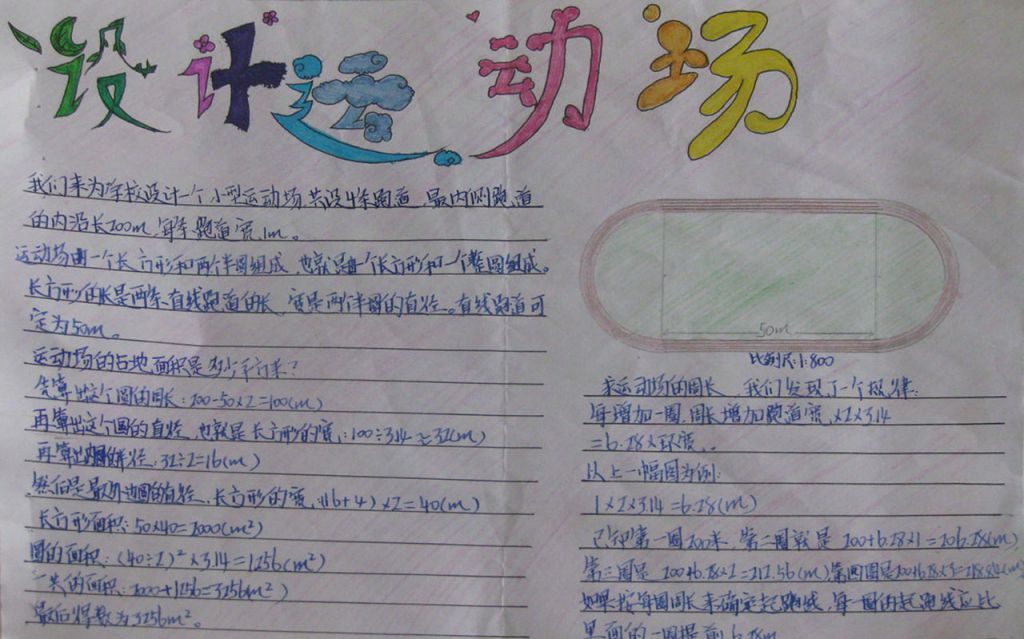 设计运动场
我们来为学校设计一个小型运动场,共设4条跑道,最内侧跑道
的内沿长200m,每条跑道宽1m。
运动场由一个长方形和两个半圆组成,也就是由一个长方形和一个整圆组成。
长方形的长是两条直线跑道的长,宽是两个半圆的直径。直线跑道可
定为50m。
运动场的占地面积是多少平方米?
先算出这个圆的周长:200-50×2=100(m)
再算出这个圆的直径,也就是长方形的宽:100÷3.14≈32(m)
再算出圆的半径:32÷2=16(m)
然后是最外边圆的直径、长方形的宽:(16+4)×2=40(m)
长方形面积:50×40=2000(m²)
圆的面积:(40÷2)²×3.14=1256(m²)
一共的面积:2000+1256=3256(m²)
最后得数为3256m²。
50m
比例尺:1:800
求运动场的周长,我们发现了一个规律:
每增加一圈,周长增加跑道宽×2×3.14
=6.28×环宽。
从上一幅图为例:
1×2×3.14=6.28(m)
已知第一圈200米,第二圈就是200+6.28×1=206.28(m)
第三圈是200+6.28×2=212.56(m)第四圈是200+6.28×3=218.84(m)
如果按每圈周长来确定起跑线,每一圈的起跑线应比
里面的一圈提前6.28m